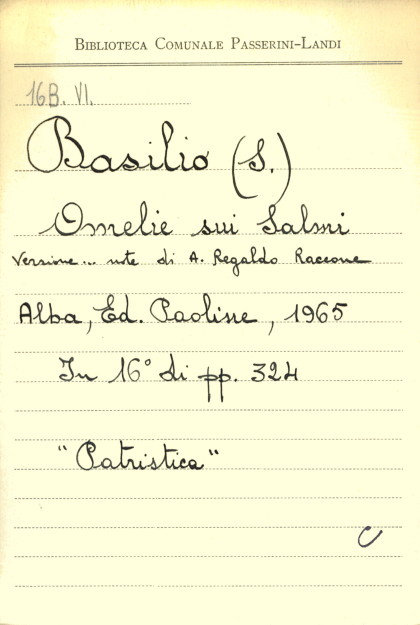 BIBLIOTECA COMUNALE PASSERINI-LANDI
16B. VI.
Basilio (S.)
Omelie sui Salmi
Versione... note di A. Regaldo Raccone
Alba, Ed. Paoline, 1965
In 16° di pp. 324
"Patristica"
C